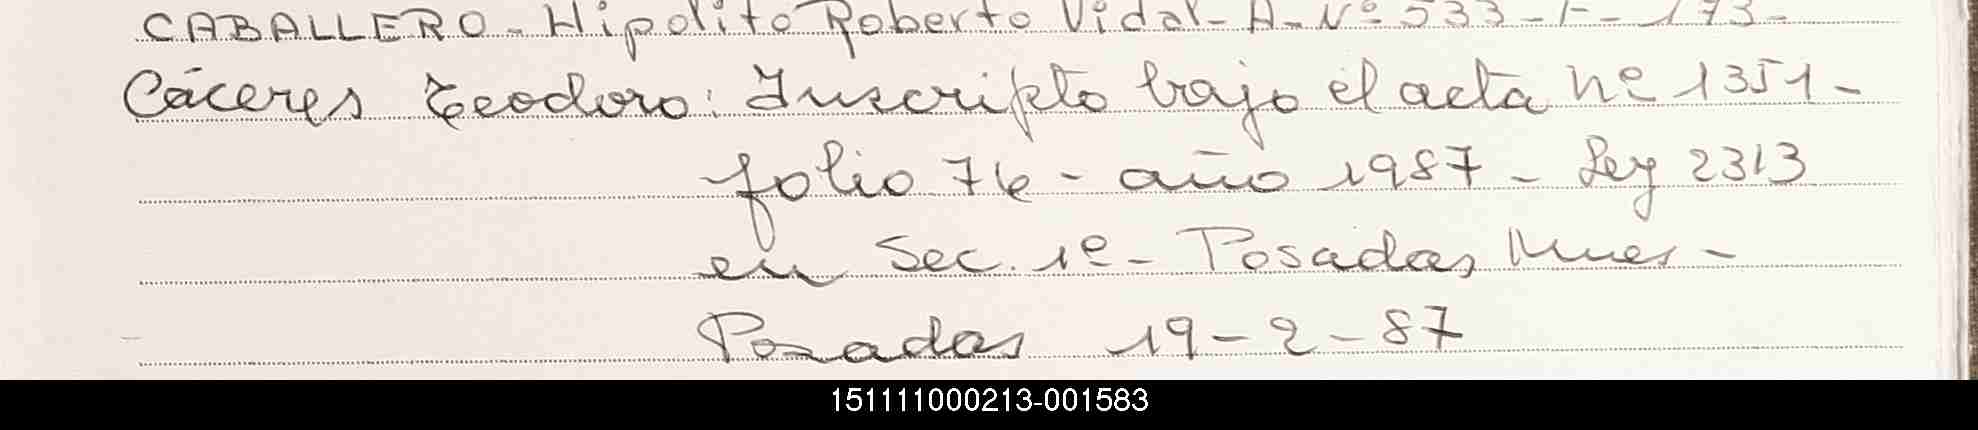 CABALLERO - Hipolito Roberto Vidal - A - Nº 533 - F - 173 -
Cáceres Teodoro: Inscripto bajo el acta nº 1351 -
folio 76 - año 1987 - Ley 2313
en Sec. 1º - Posadas, Mnes -
Posadas 19-2-87
151111000213-001583